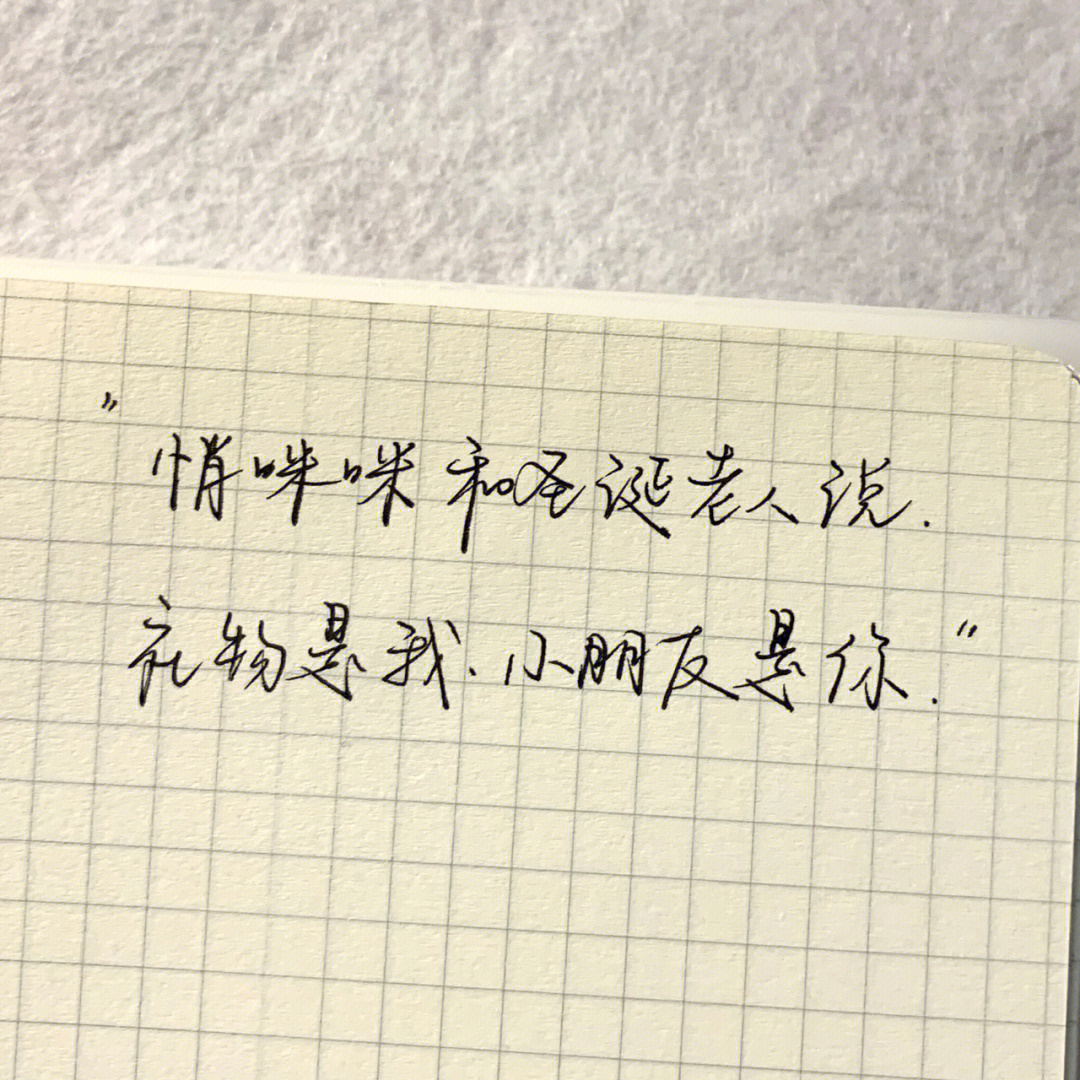 "悄咪咪和圣诞老人说.
礼物是我.小朋友是你."